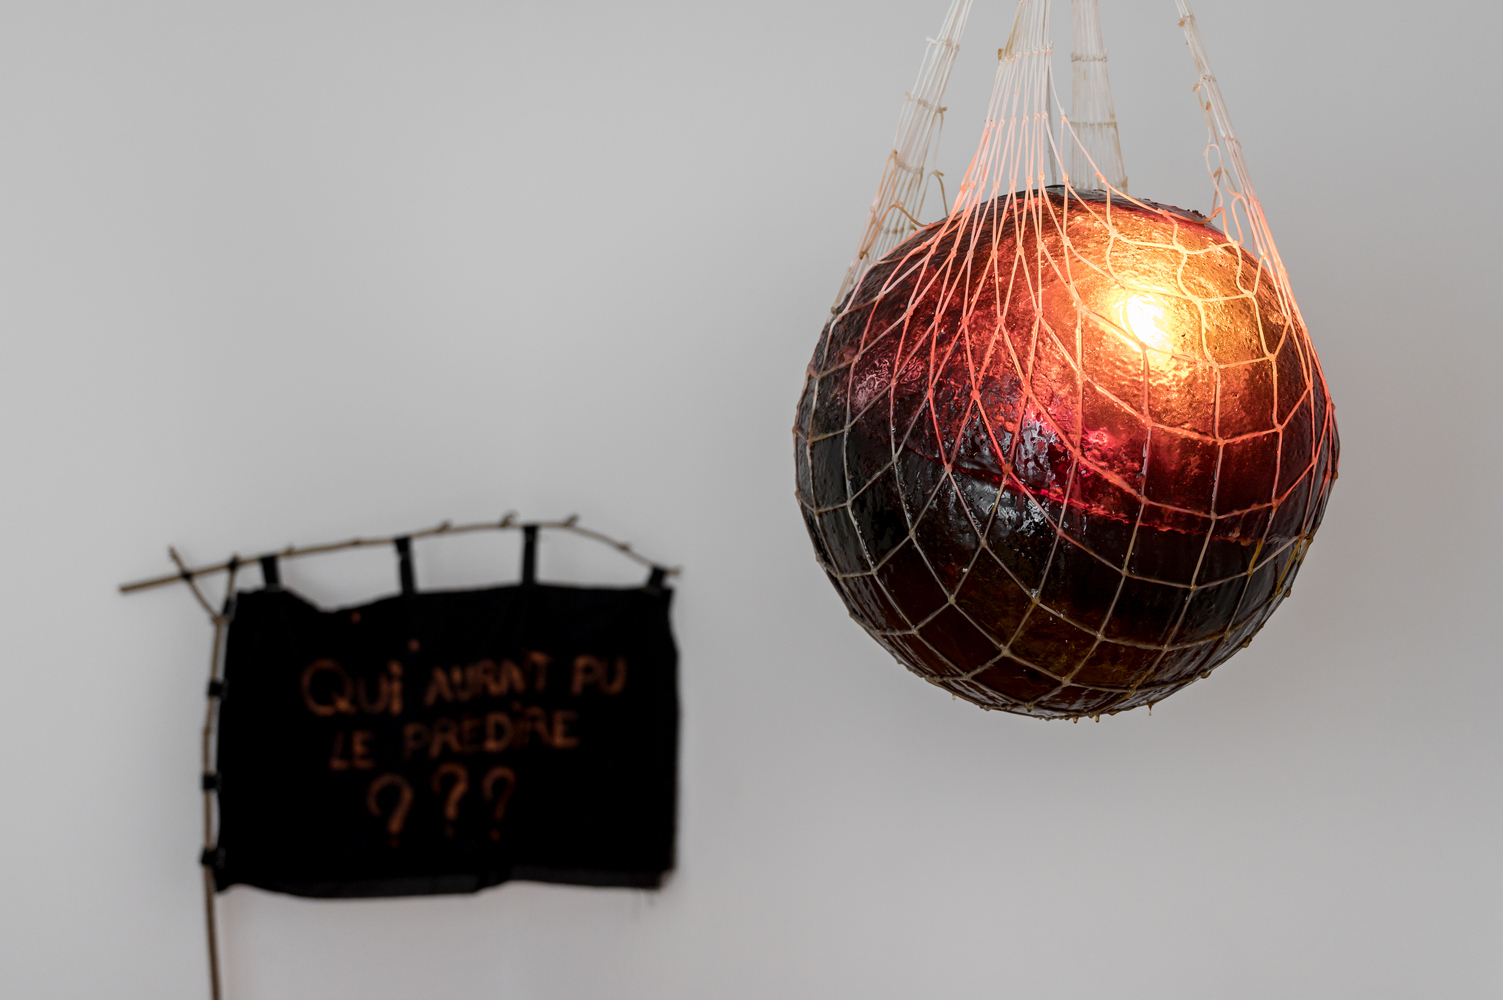 QUi AURAiT PU
LE PREDiRE
???